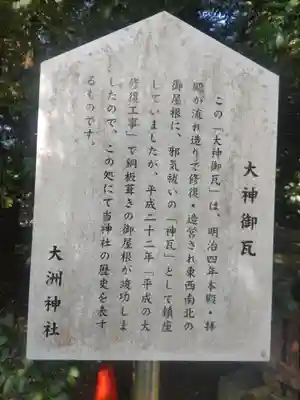 大神御瓦
この「大神御瓦」は、明治四年本殿・拝
殿が流れ造りで修復・造営され東西南北の
御屋根に、邪気祓いの「神瓦」として鎮座
していましたが、平成二十二年「平成の大
修復工事」で銅板葺きの御屋根が竣功しま
したので、この処にて当神社の歴史を表す
るものです。
大洲神社